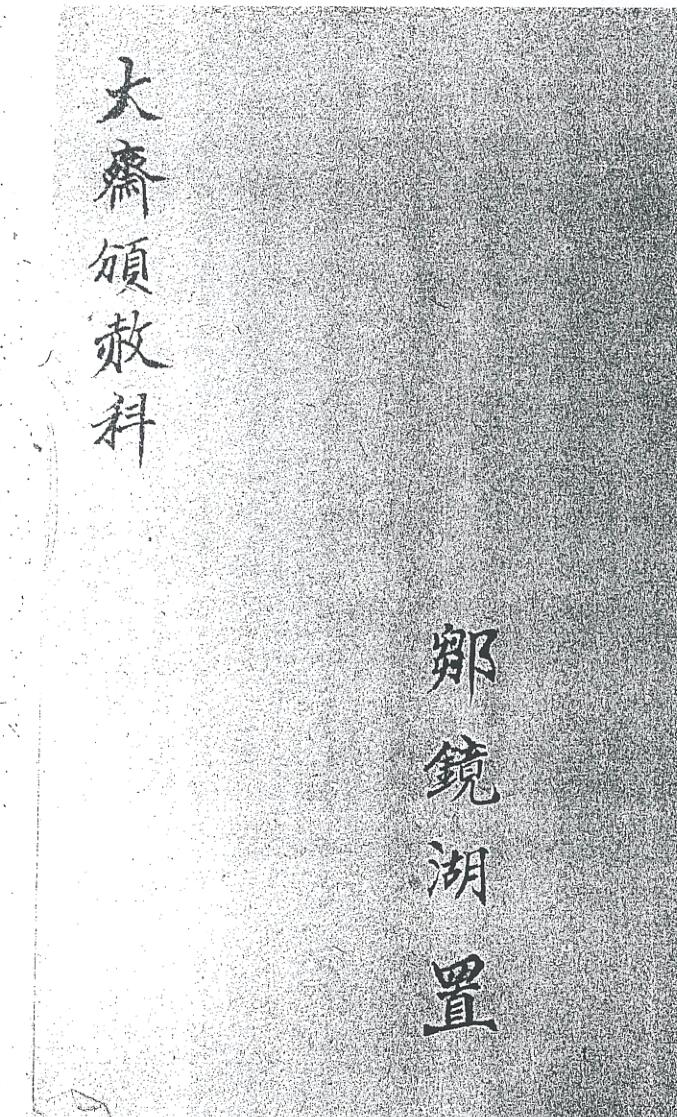 大齋頒赦科
鄒鏡湖置